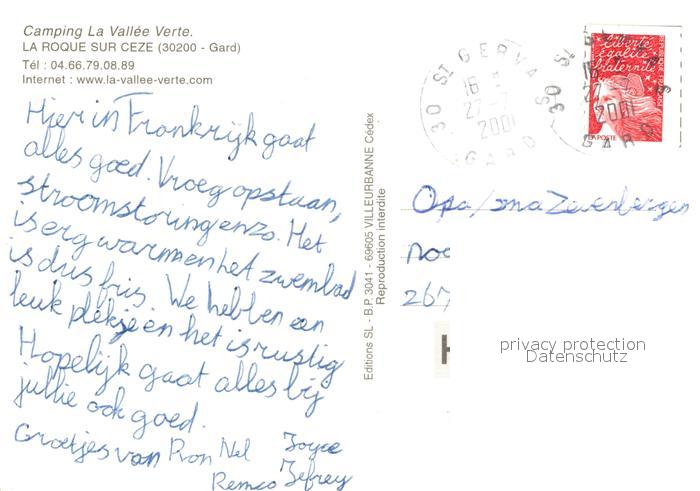 Camping La Vallée Verte.
LA ROQUE SUR CEZE (30200 - Gard)
Tél : 04.66.79.08.89
Internet : www.la-vallee-verte.com
Hier in Frankrijk gaat
alles goed. Vroeg opstaan,
stroomstoring enzo. Het
is erg warm en het zwembad
is dus fris. We hebben een
leuk plekje en het is rustig
Hopelijk gaat alles bij
jullie ook goed.
Groetjes van Ron Nel Joyce
Remco Jefrey
Editions SL - B.P. 3041 - 69605 VILLEURBANNE Cédex
Reproduction interdite
30 ST GERVA
16
27-7
2001
GARD
30 ST
16
27-7
2001
GARD
liberté
égalité
fraternité
REPUBLIQUE FRANÇAISE
LA POSTE
Opa/oma Zevenbergen
noo
267
privacy protection
Datenschutz